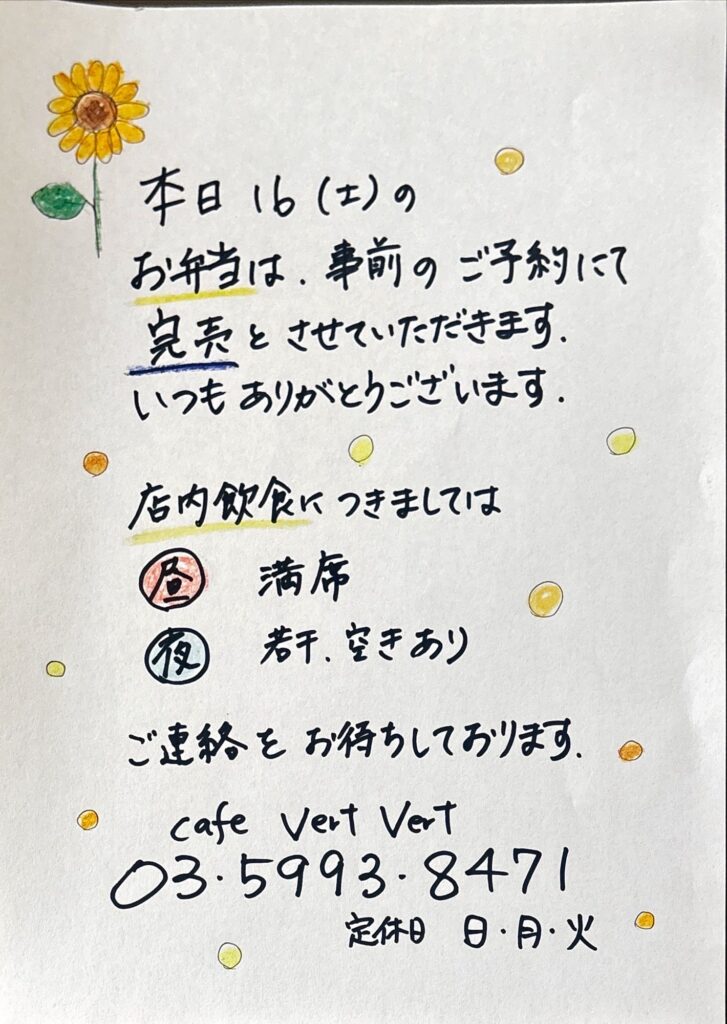 本日16(土)の
お弁当は、事前のご予約にて
完売とさせていただきます.
いつもありがとうございます.
店内飲食につきましては
昼 満席
夜 若干、空きあり
ご連絡をお待ちしております.
cafe Vert Vert
03・5993・8471
定休日 日・月・火